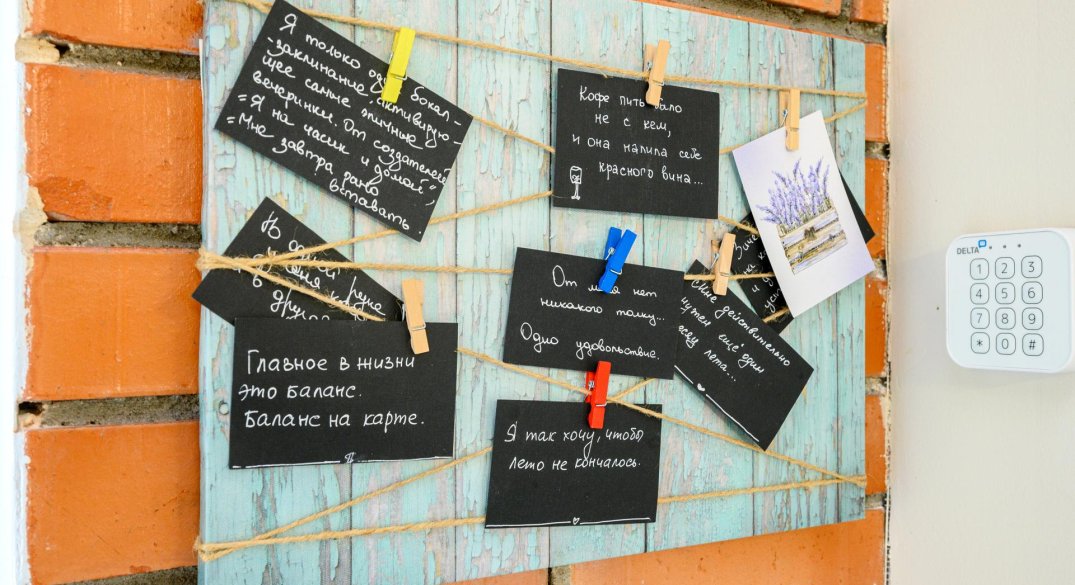 Я только один бокал -
-заклинание, активирую-
щее самые эпичные
вечеринки. От создателей
=Я на часик и домой",
=Мне завтра рано
вставать.
Кофе пить было
не с кем,
и она налила себе
красного вина...
В одной руке
в другой
От меня нет
никакого толку...
Одно удовольствие.
действительно
нужен ещё один
лета...
Главное в жизни
это баланс.
Баланс на карте.
Я так хочу, чтобы
лето не кончалось.
DELTA
1 2 3
4 5 6
7 8 9
* 0 #